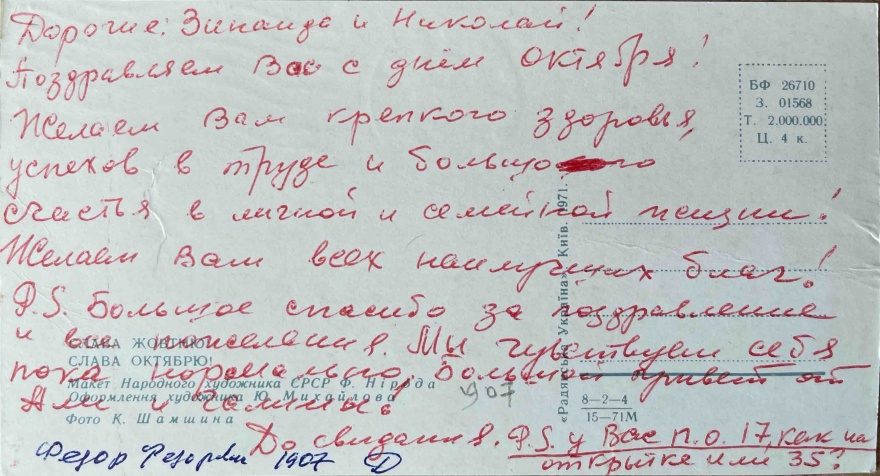 Дорогие: Зинаида и Николай!
Поздравляем Вас с днём Октября!
Желаем Вам крепкого здоровья,
успехов в труде и большого
счастья в личной и семейной жизни!
Желаем Вам всех наилучших благ!
P.S. Большое спасибо за поздравление
и ваши пожелания. Мы чувствуем себя
пока нормально. Большой привет от
Али и Галины!
До свидания. P.S. у Вас п.о. 17, как на
открытке или 35?
Федор Федорович 1907
907
БФ 26710
З. 01568
Т. 2.000.000
Ц. 4 к.
«Радянська Україна». Київ. 1971.
СЛАВА ЖОВТНЮ!
СЛАВА ОКТЯБРЮ!
Макет Народного художника СРСР Ф. Нірода
Оформлення художника Ю. Михайлова
Фото К. Шамшина
8—2—4
15—71М